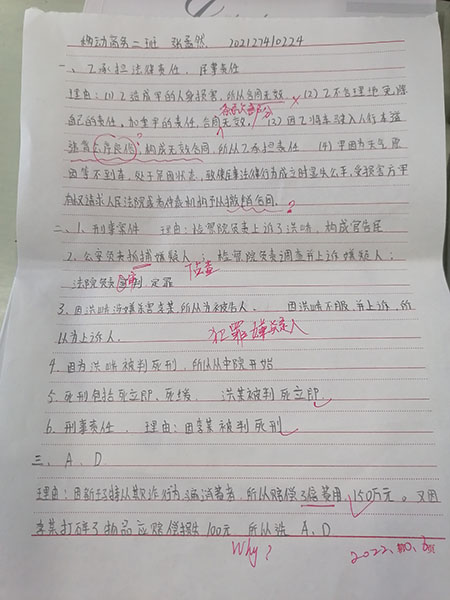 移动商务二班 张孟然 202127410224
一、乙承担法律责任、民事责任
理由:(1)乙造成甲的人身损害,所以合同无效 ×(2)乙不合理地免除
自己的责任、加重甲的责任,合同无效,(3)因乙将车驶入人行本道
违背公序良俗,构成无效合同,所以乙承担责任 (4)甲因为天气原
因等不到车,处于危困状态,致使民事法律行为成立时显失公平,受损害方甲
有权请求人民法院或者仲裁机构予以撤销合同。?
二、1.刑事案件 理由:检察院负责上诉了洪峤,构成官告民
2.公安负责抓捕嫌疑人;检察院负责调查并上诉嫌疑人;
侦查
法院负责审判定罪
3.因洪峤涉嫌杀害李某,所以为被告人、 因洪峤不服并上诉,所
以为上诉人.
犯罪嫌疑人
4.因为洪峤被判死刑,所以从中院开始
5.死刑包括死立即、死缓、 洪某被判死立即
6.刑事责任、 理由:因李某被判死刑
三、A、D
150万元。又因
李某打碎了物品应赔偿损失100元 所以选 A、D
Why?